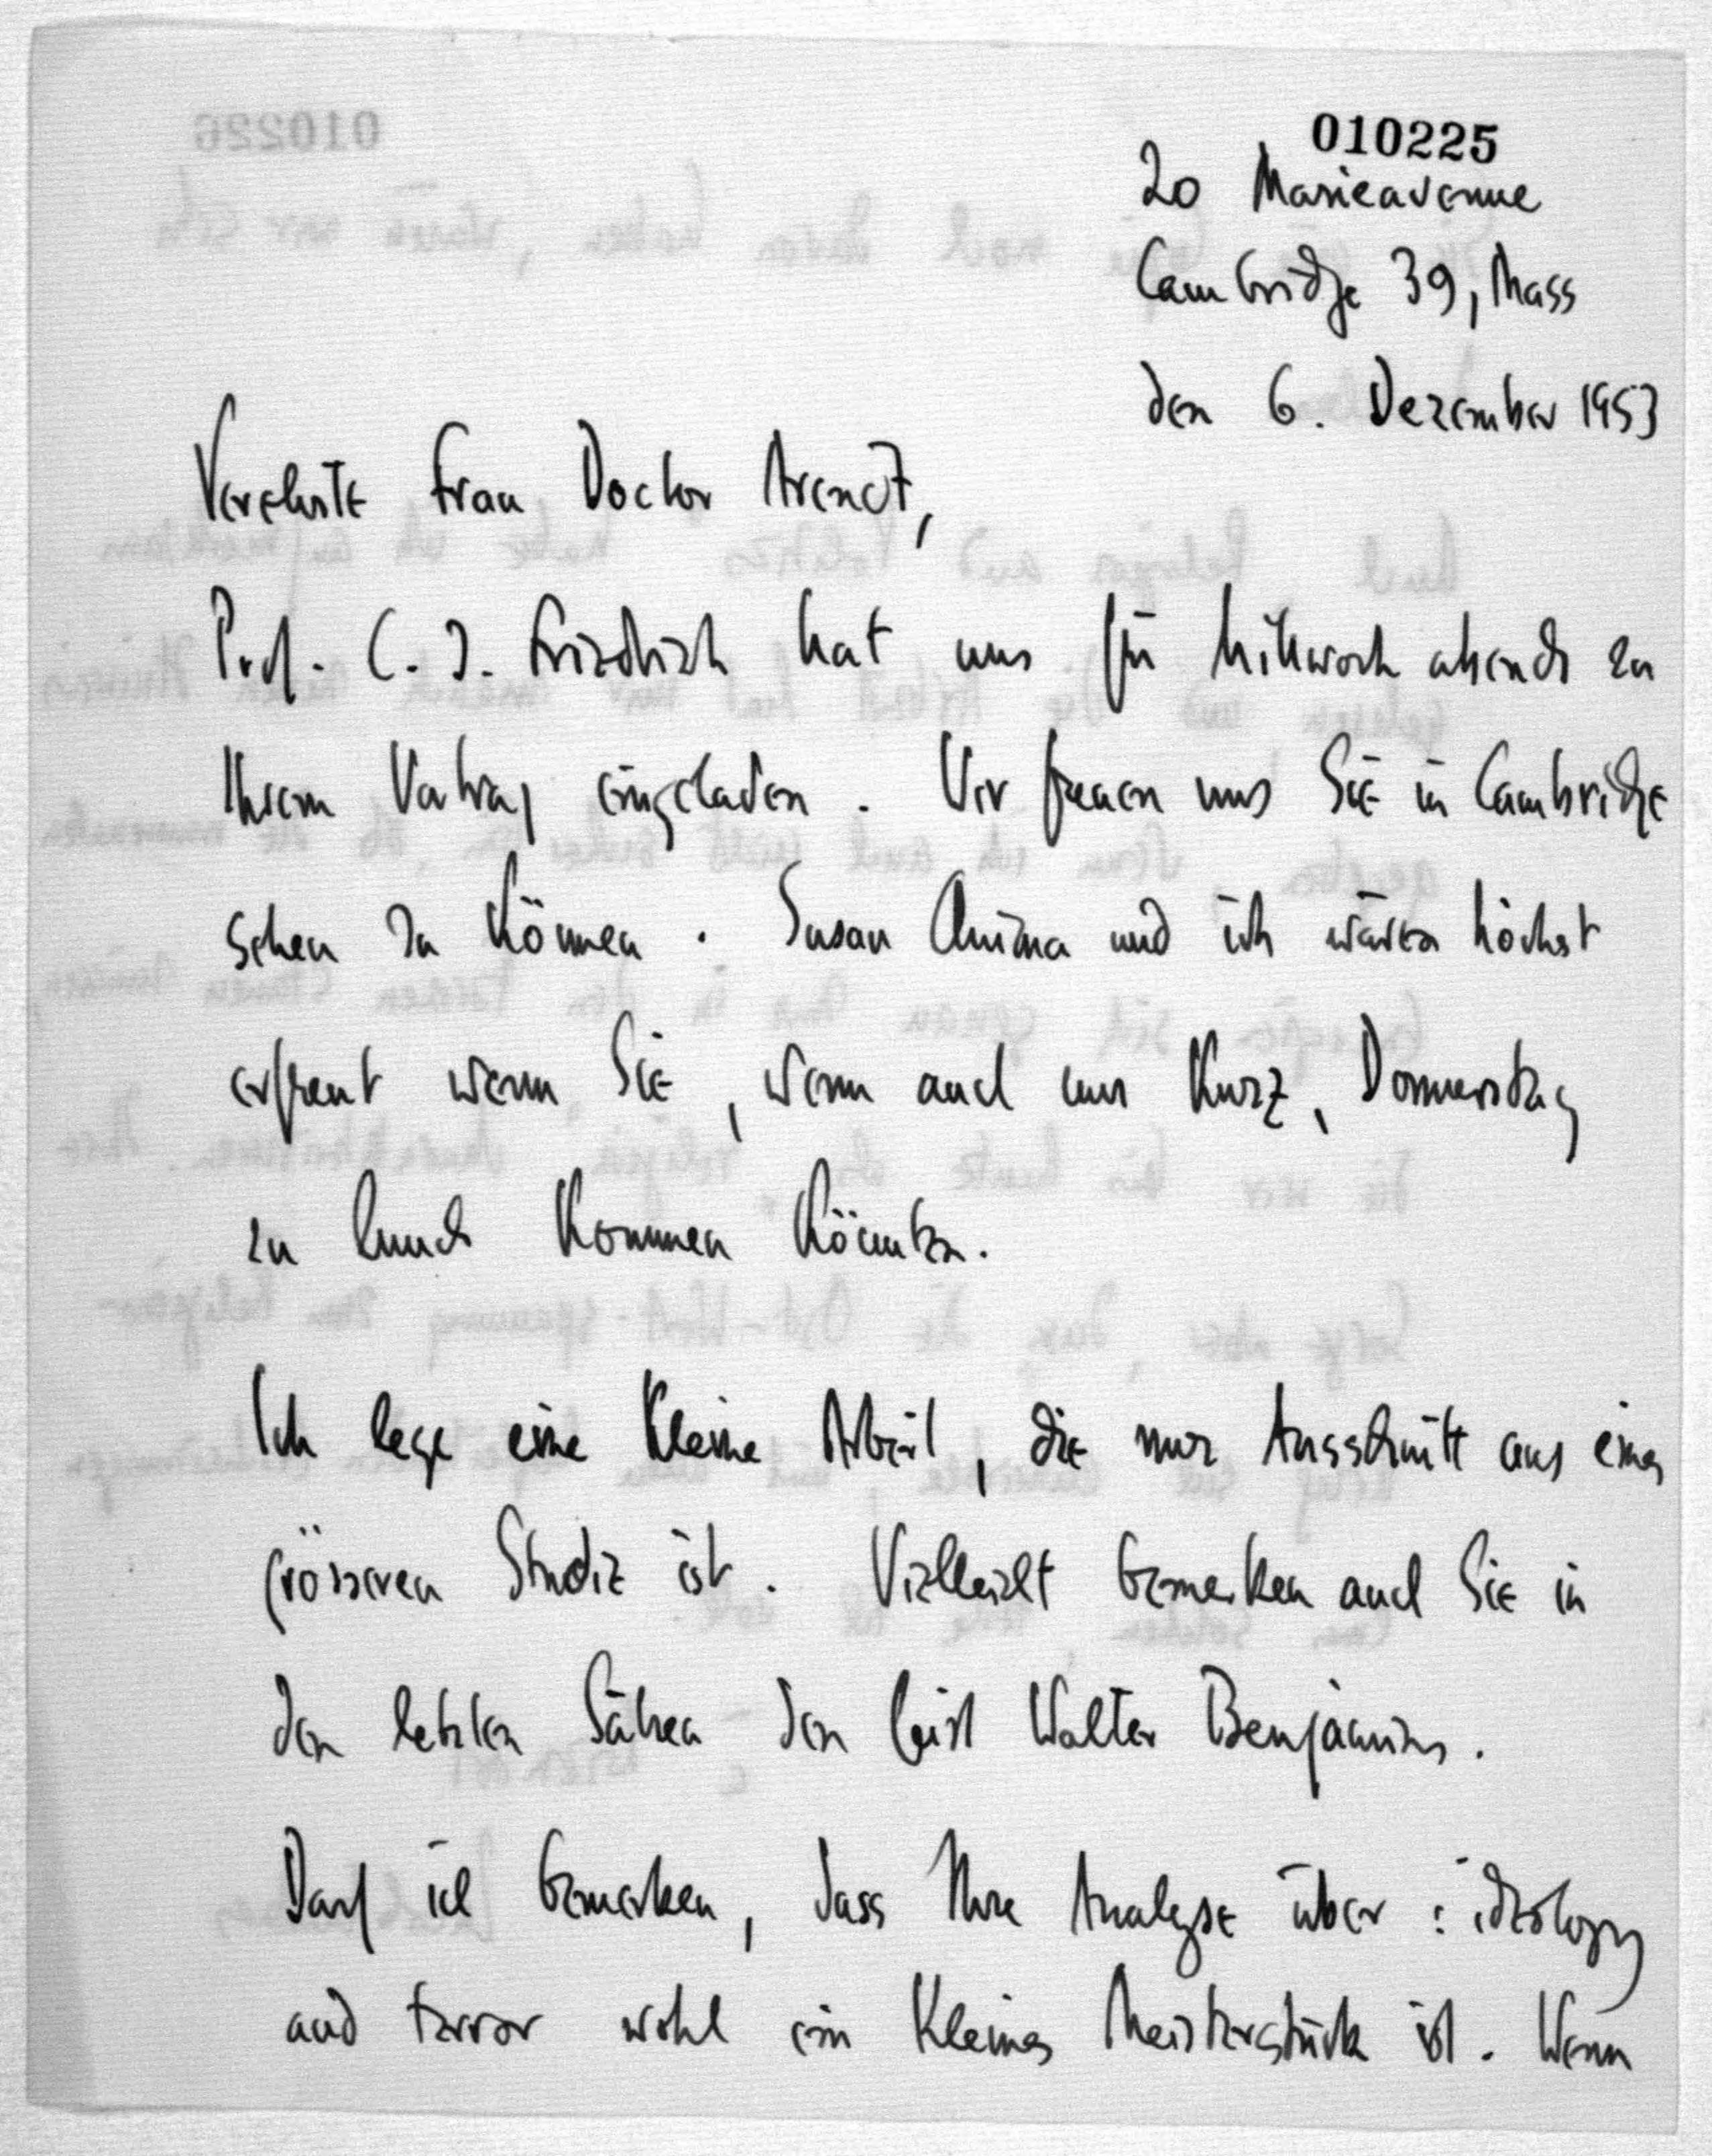 010225
20 Marieavenue
Cambridge 39, Mass
den 6. Dezember 1953
Verehrte Frau Doctor Arendt,
Prof. C. J. Friedrich hat uns für Mittwoch abends zu
Ihrem Vortrag eingeladen. Wir freuen uns Sie in Cambridge
sehen zu können. Susan Anima und ich wären höchst
erfreut wenn Sie, wenn auch nur kurz, Donnerstag
zu lunch kommen könnten.
Ich lege eine kleine Arbeit, die nur Ausschnitt aus einer
grösseren Studie ist. Vielleicht bemerken auch Sie in
den letzten Sätzen den Geist Walter Benjamins.
Darf ich bemerken, dass Ihre Analyse über: ideology
and terror wohl ein kleines Meisterstück ist. Wenn